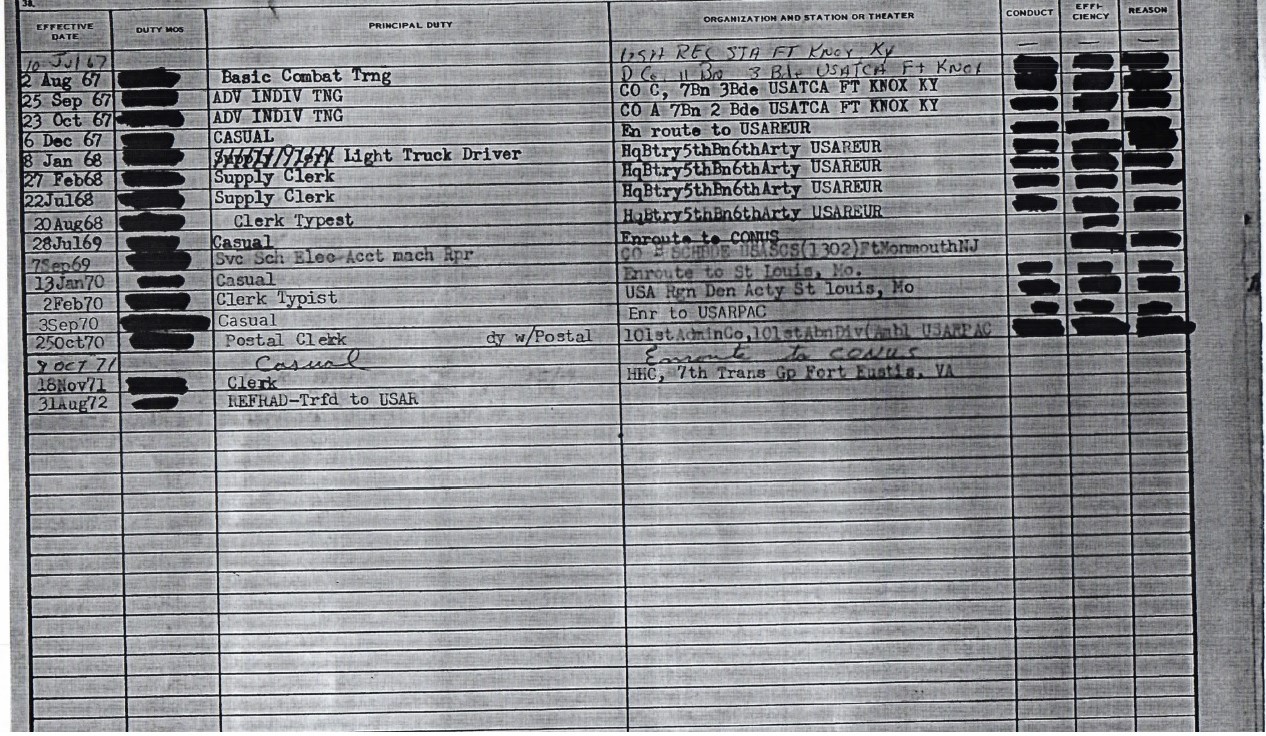 38.
EFFECTIVE DATE DUTY MOS PRINCIPAL DUTY ORGANIZATION AND STATION OR THEATER CONDUCT EFFI- CIENCY REASON
10 Jul 67 USA REC STA FT Knox Ky — — —
2 Aug 67 Basic Combat Trng D Co 11 Bn 3 Bde USATCA Ft Knox
25 Sep 67 ADV INDIV TNG CO C, 7Bn 3Bde USATCA FT KNOX KY
23 Oct 67 ADV INDIV TNG CO A 7Bn 2 Bde USATCA FT KNOX KY
6 Dec 67 CASUAL En route to USAREUR
8 Jan 68 Light Truck Driver HqBtry5thBn6thArty USAREUR
27 Feb68 Supply Clerk HqBtry5thBn6thArty USAREUR
22Jul68 Supply Clerk HqBtry5thBn6thArty USAREUR
20Aug68 Clerk Typest HqBtry5thBn6thArty USAREUR
28Jul69 Casual Enroute to CONUS
7Sep69 Svc Sch Elec Acct mach Rpr CO E SCHBDE USASCS(1302)FtMonmouthNJ
13Jan70 Casual Enroute to St Louis, Mo.
2Feb70 Clerk Typist USA Rgn Den Acty St louis, Mo
3Sep70 Casual Enr to USARPAC
25Oct70 Postal Clerk dy w/Postal 101stAdminCo,101stAbnDiv(Ambl USARPAC
9 OCT 71 Casual Enroute to CONUS
18Nov71 Clerk HHC, 7th Trans Gp Fort Eustis, VA
31Aug72 REFRAD-Trfd to USAR